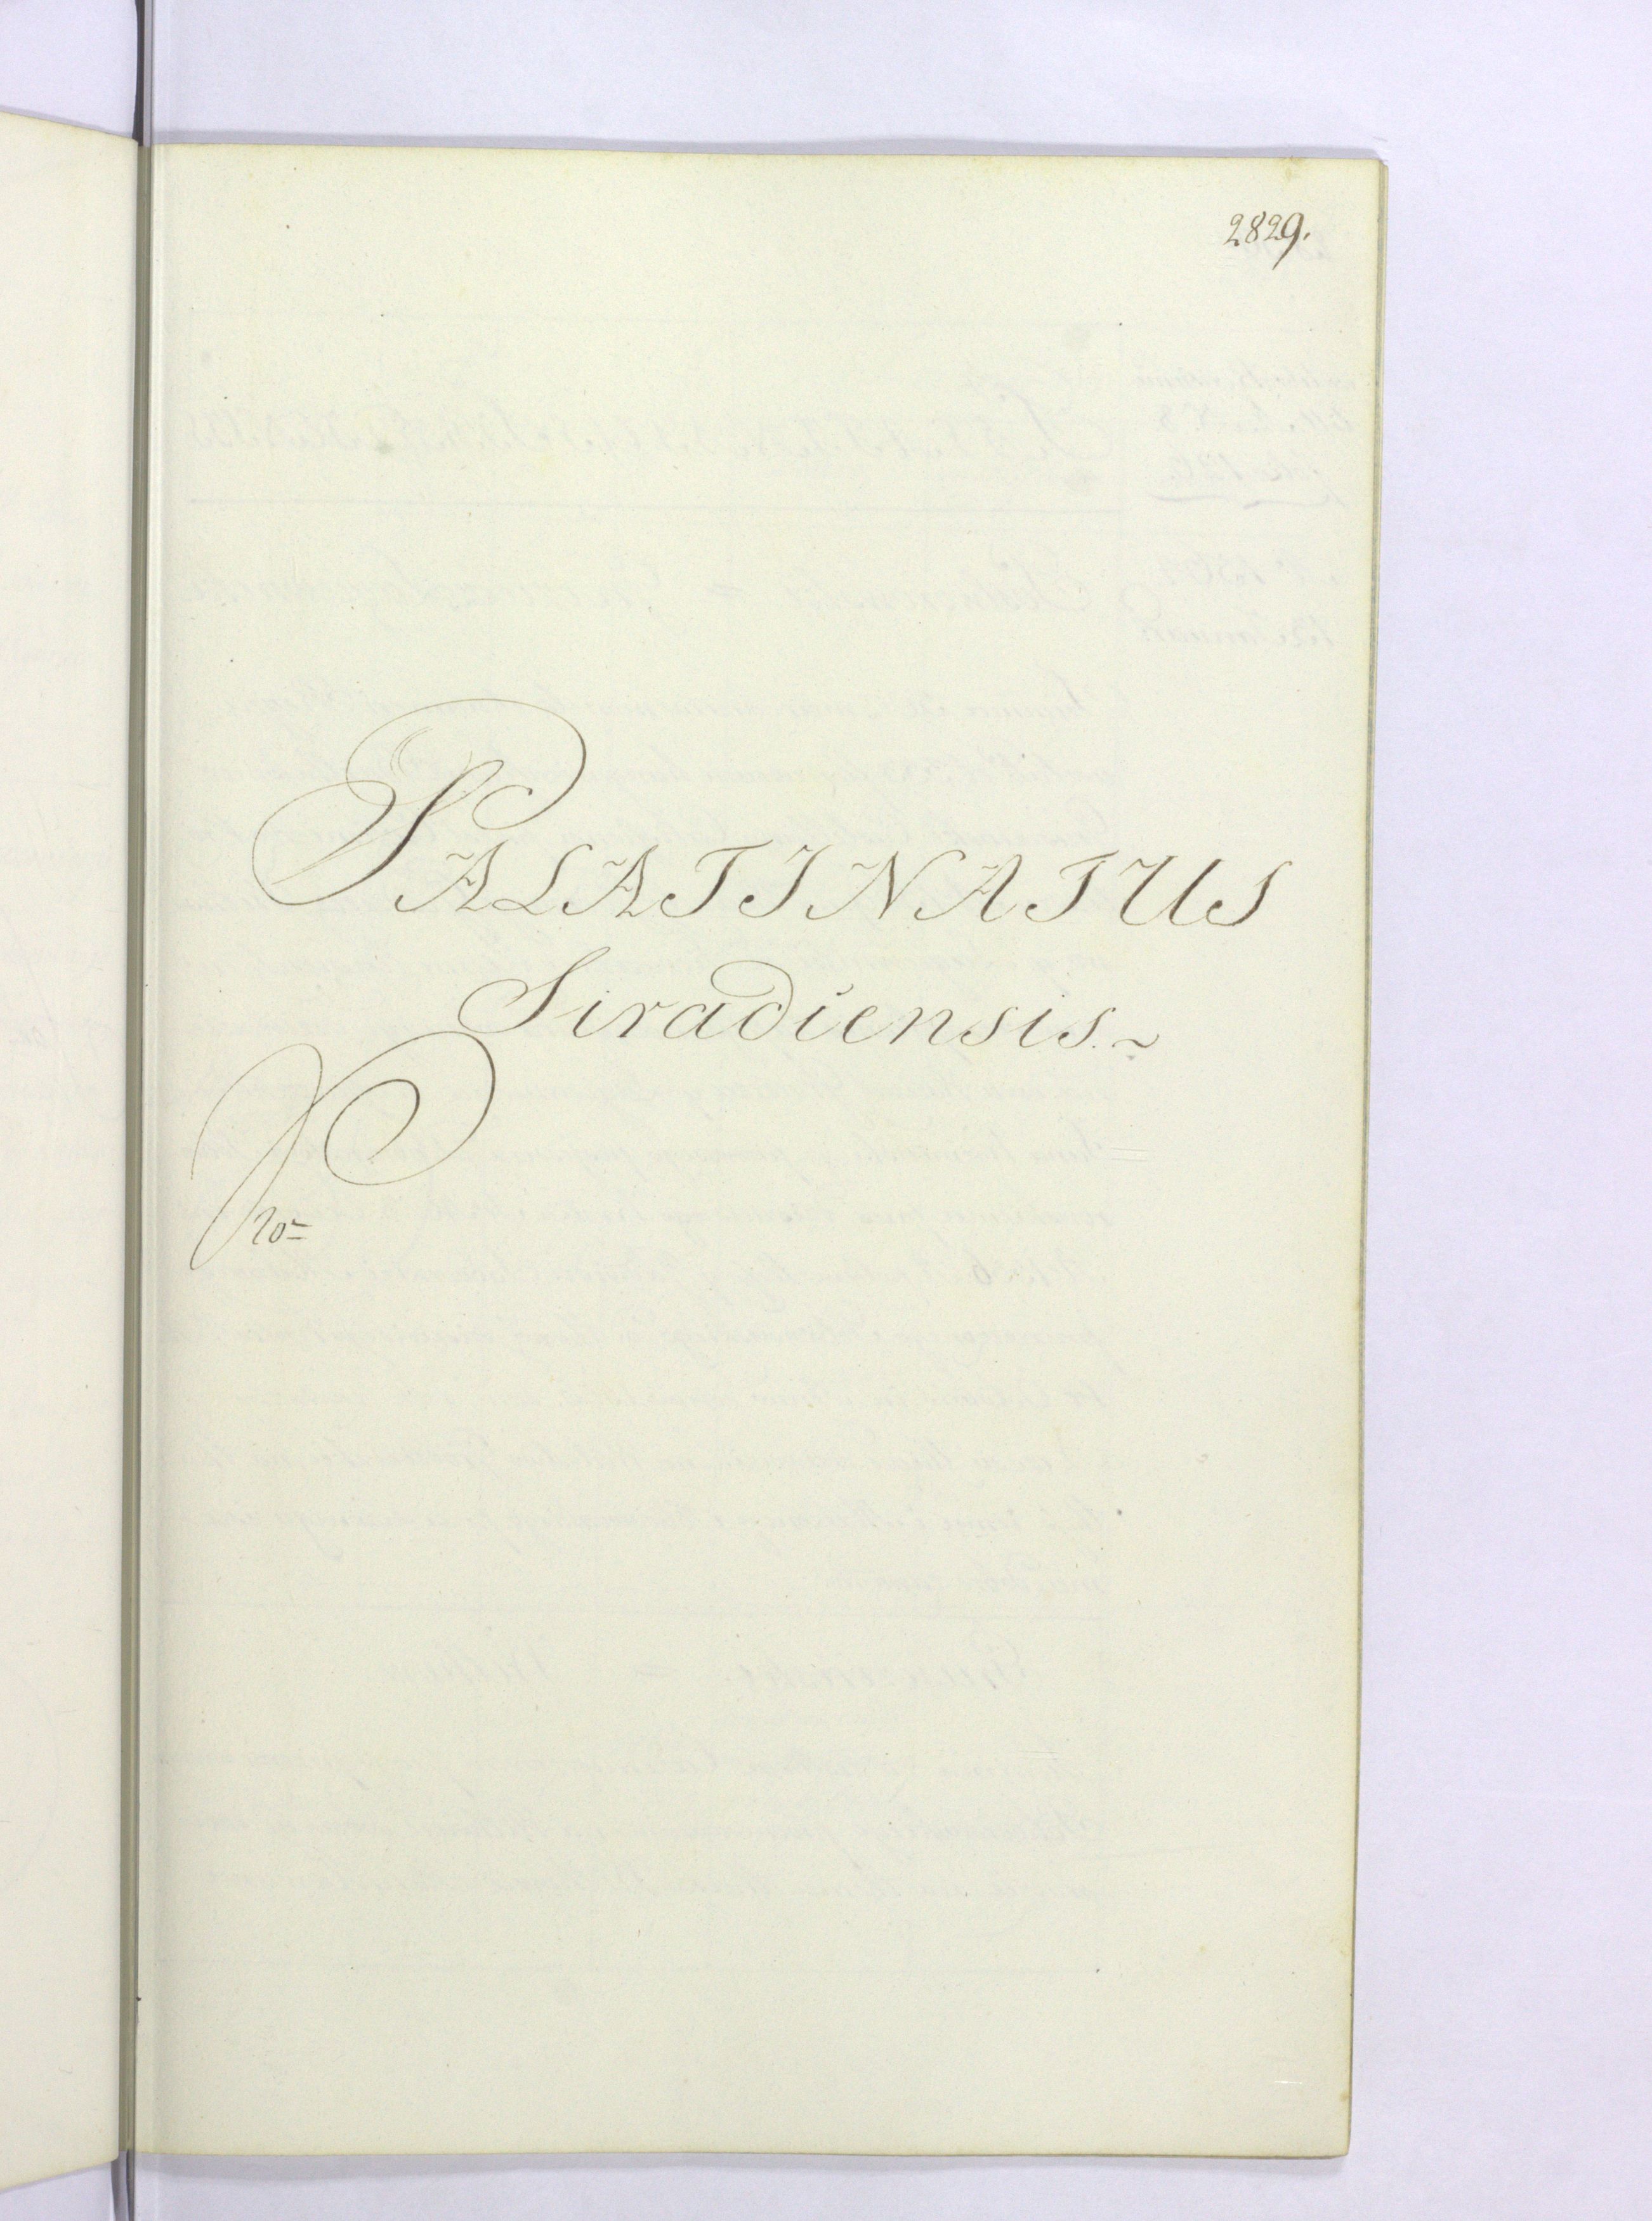 2829.
PALATINATUS
Siradiensis.~